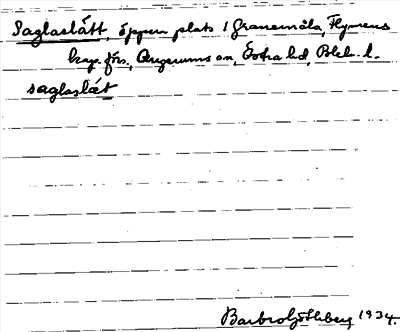 Saglaslätt, öppen plats i Granemåla, Flymens
kap.förs., Augerums sn, Östra hd, Blek. l.
saglaslæt
Barbro Göthberg 1934.